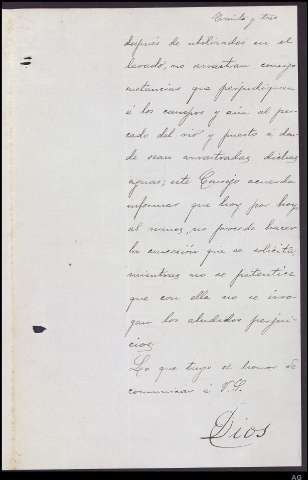 Treinta y tres
después de utilizadas en el
lavado, no arrastran consigo
sustancias que perjudiquen
á los campos y aún al pes-
cado del rio y puerto á don-
de sean arrastradas dichas
aguas; este Consejo acuerda
informar que hoy por hoy,
al menos, no procede hacer
la concesión que se solicita,
mientras no se patentice
que con ella no se irro-
gan los aludidos perjui-
cios.
Lo que tengo el honor de
comunicar á V.S.
Dios